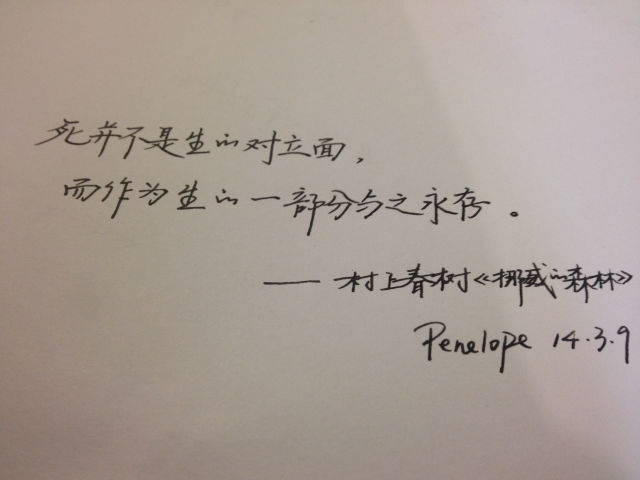 死并不是生的对立面，
而作为生的一部分与之永存。
——村上春树《挪威的森林》
Penelope 14.3.9